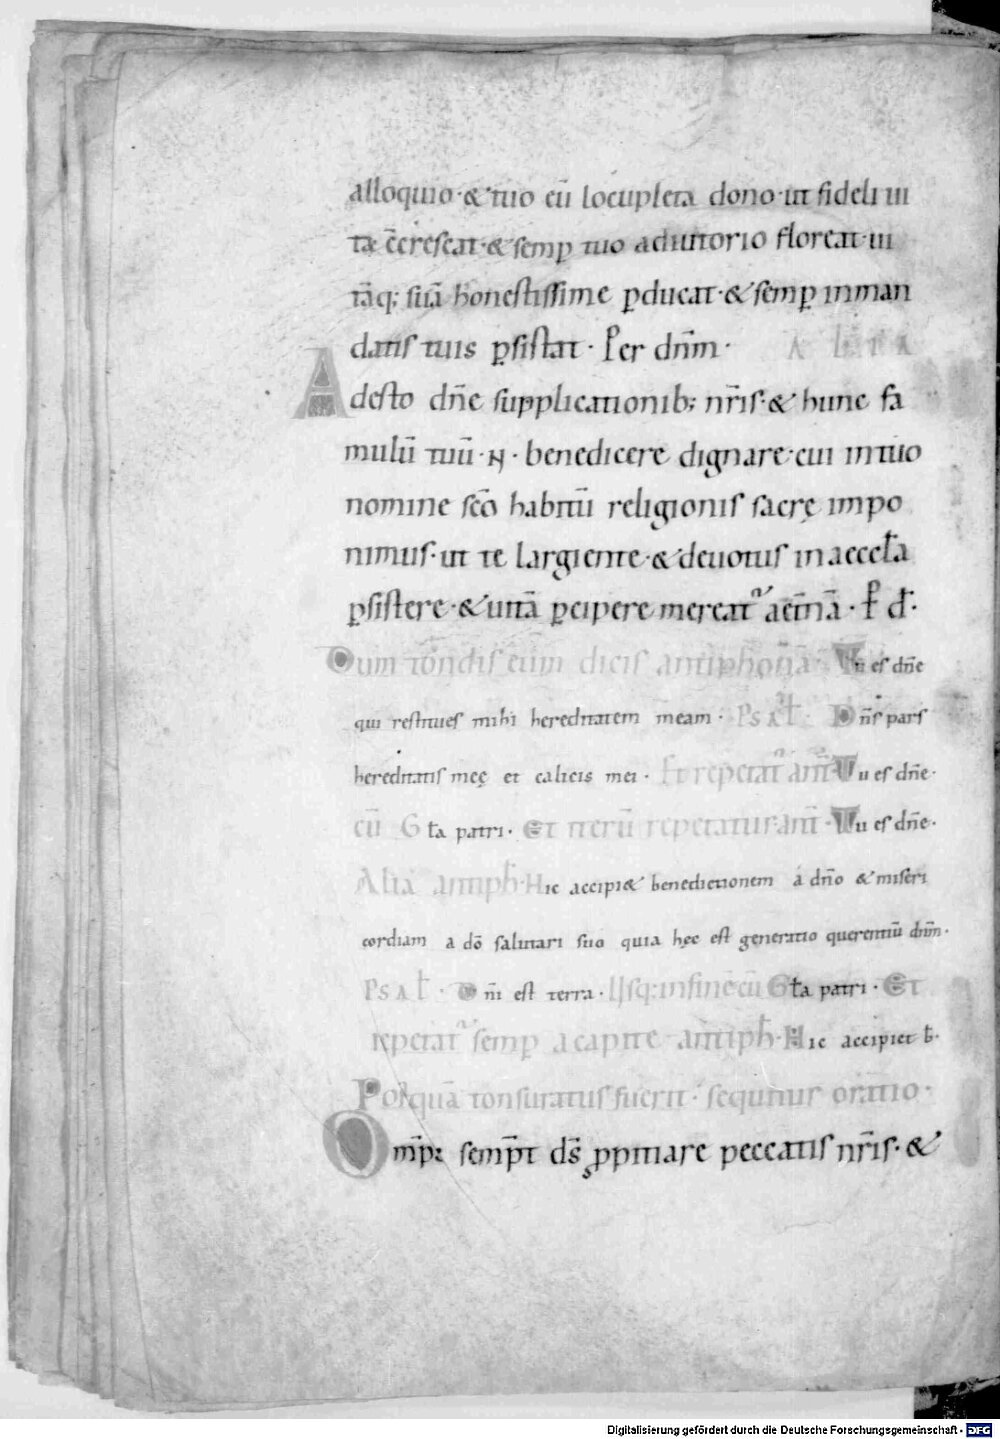 alloquio · & tuo cū locupleta dono · ut fideli ui
tæ c̄crescat · & semp̱ tuo adiutorio floreat · ui
tāq; suā honestissime ꝑducat · & semꝑ in man
datis tuis ꝑsistat · Per dn̄m · ALIA
Adesto dn̄e supplicationib; nr̄is · & hunc fa
mulū tuū · N · benedicere dignare · cui in tuo
nomine sc̄o habitū religionis sacrę impo
nimus · ut te largiente · & deuotus in aeccl̄a
ꝑsistere · & uitā ꝑcipere mereat᷑ aet̄nā · P̄ d̄ ·
Dum tondis eum dicis antiphonā · Tu es dn̄e
qui restitues mihi hereditatem meam · PSAL̄ · Dn̄s pars
hereditatis meę et calicis mei · Et repetat᷑ ant̄ · Tu es dn̄e ·
cū Gl̄a patri · Et iterū repetatur ant̄ · Tu es dn̄e ·
Alia antiph̄ · Hic accipi& benedictionem a dn̄o & miseri
cordiam a dō salutari suo quia hęc est generatio querentiū dn̄m ·
PSAL̄ · Dn̄i est terra · Usq; in finē cū Gl̄a patri · Et
repetat᷑ semꝑ a capite antiph̄ · Hic accipiet b̄ ·
Postquā tonsuratus fuerit · sequitur oratio ·
Om̄ps semp̄t ds̄ ꝓpitiare peccatis nr̄is · &
Digitalisierung gefördert durch die Deutsche Forschungsgemeinschaft - DFG